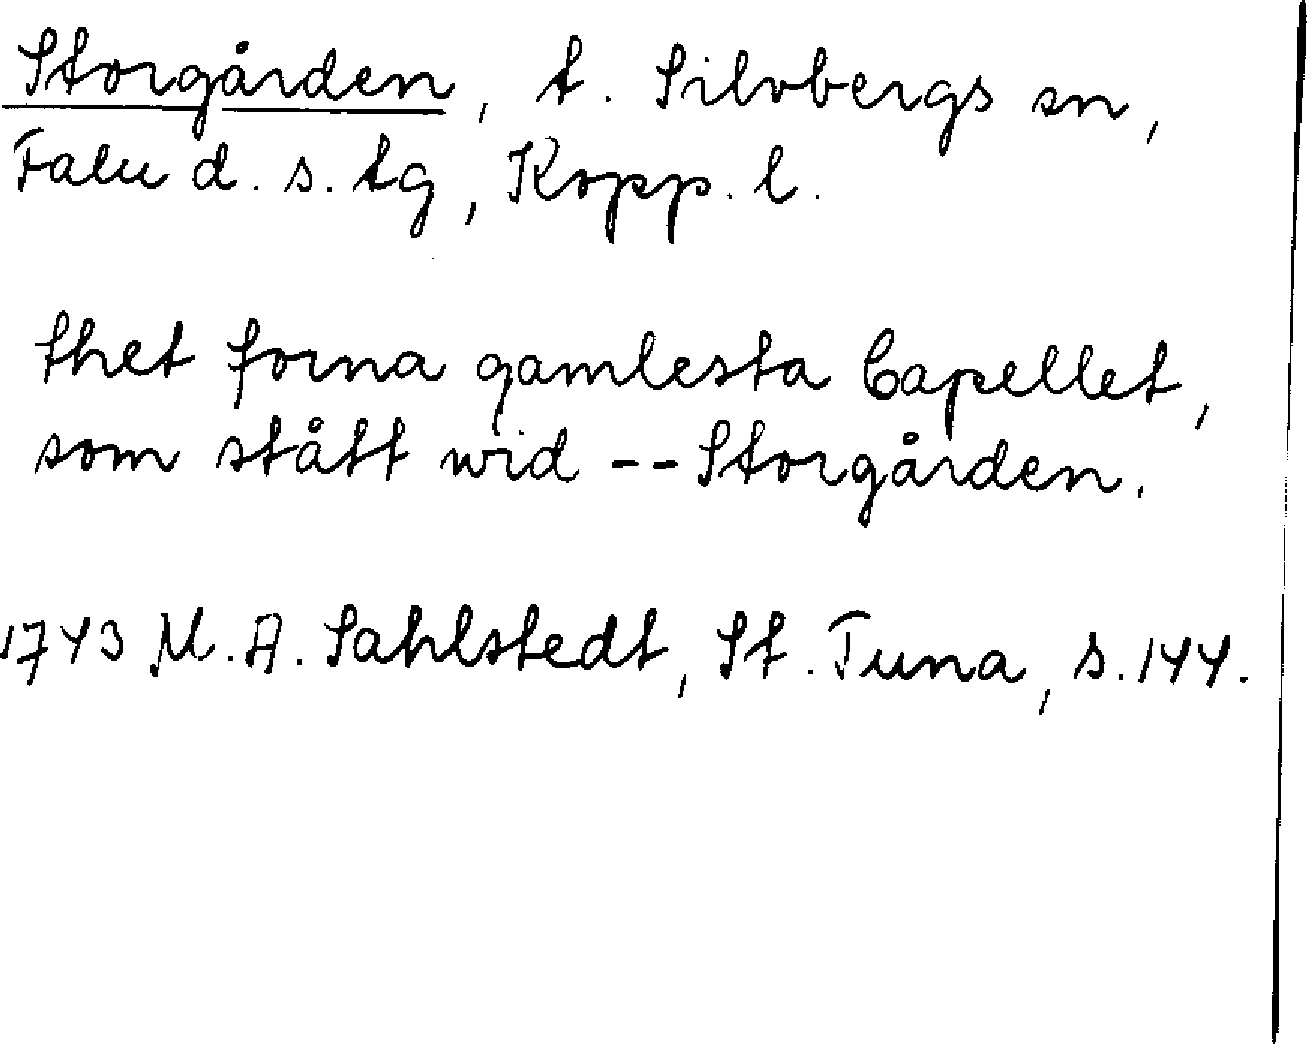 Storgården, t. Silvbergs sn,
Falu d. s. tg, Kopp. l.
thet forna gamlesta Capellet,
som stått wid -- Storgården.
1743 M. A. Sahlstedt, St. Tuna, s. 144.